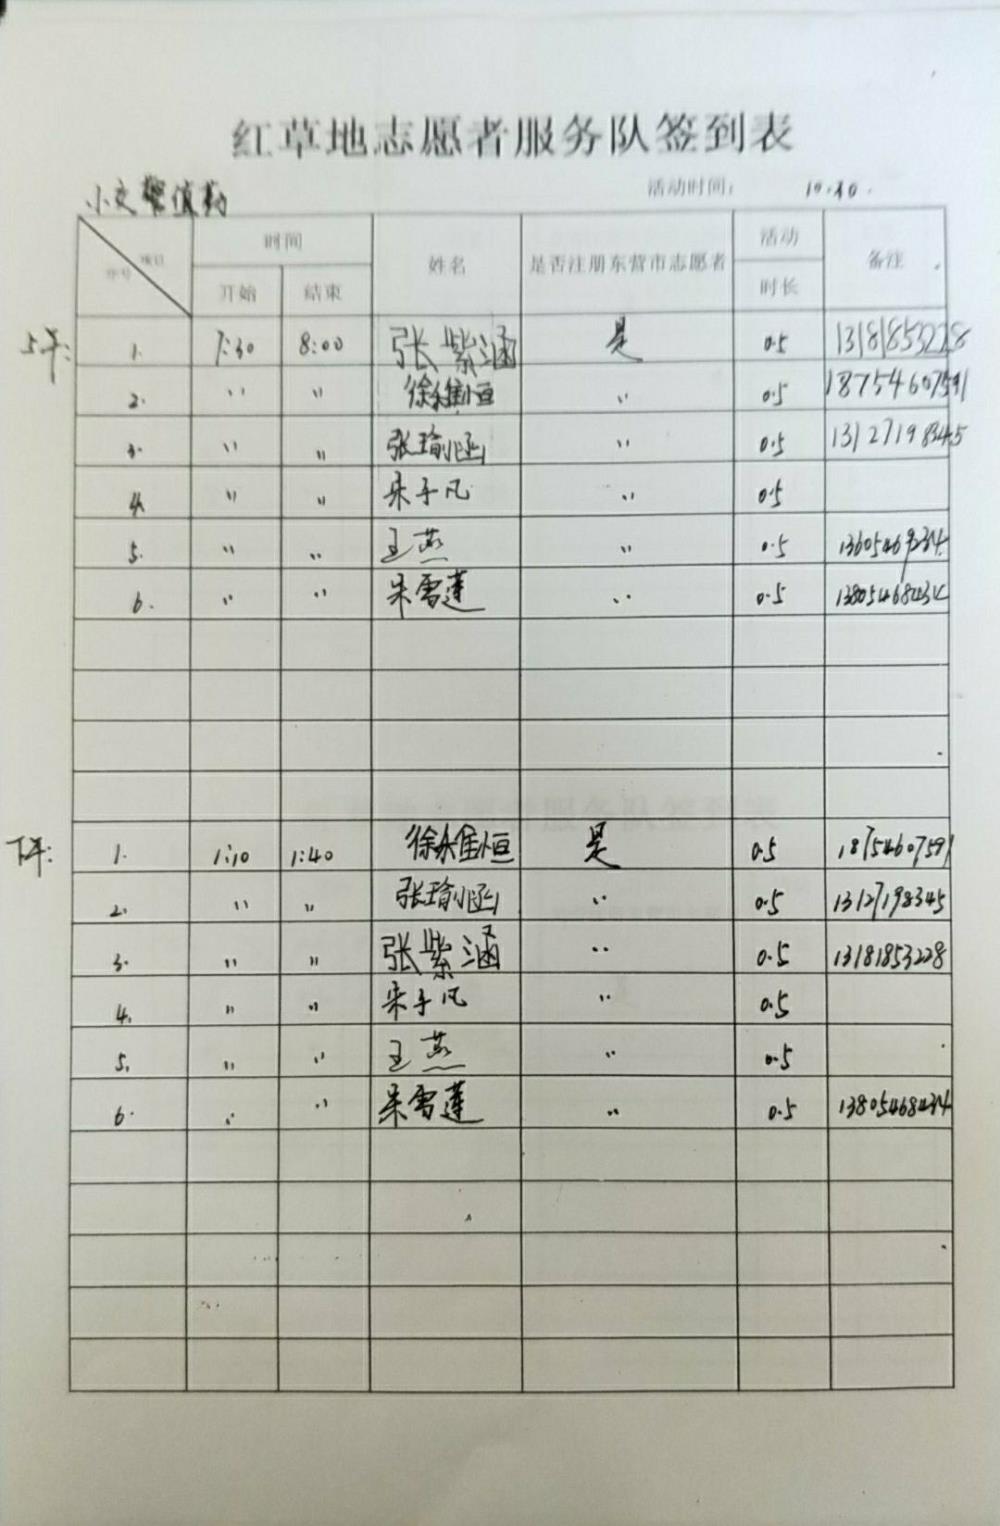 红草地志愿者服务队签到表
小交警值勤 活动时间: 10.30.
序号 项目 时间 姓名 是否注册东营市志愿者 活动 备注
开始 结束 时长
上午: 1. 7:30 8:00 张紫涵 是 0.5 13181853228
2. 〃 〃 徐维恒 〃 0.5 18754607591
3. 〃 〃 张瑜涵 〃 0.5 13127198345
4. 〃 〃 宋子凡 〃 0.5
5. 〃 〃 王燕 〃 0.5
6. 〃 〃 宋雪莲 〃 0.5 13805468434
下午: 1. 1:10 1:40 徐维恒 是 0.5 18754607591
2. 〃 〃 张瑜涵 〃 0.5 13127198345
3. 〃 〃 张紫涵 〃 0.5 13181853228
4. 〃 〃 宋子凡 〃 0.5
5. 〃 〃 王燕 〃 0.5
6. 〃 〃 宋雪莲 〃 0.5 13805468434